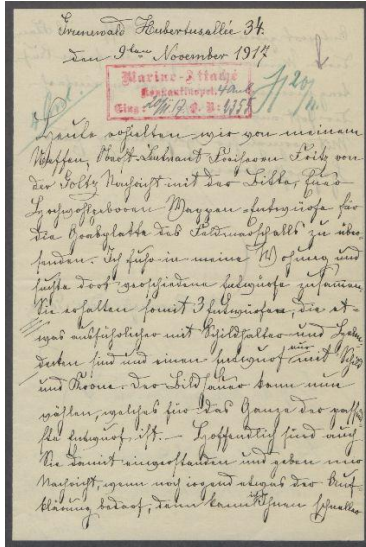 Grunewald Hubertusallée 34.
den 9ten November 1917
Marine-Attaché
Konstantinopel.
Eing:
Heute erhielten wir von meinem
Neffen, Oberst-Leutnant Freiherrn Fritz von
der Goltz Nachricht mit der Bitte, Euer
Hochwohlgeboren Wappen-Entwürfe für
die Grabplatte des Feldmarschalls zu über-
senden. Ich fuhr in meine Wohnung und
suchte dort verschiedene Entwürfe zusammen.
Sie erhalten somit 3 Entwürfe, die et-
was ausführlicher mit Schildhalter und
sind und einen Entwurf nur mit Schild
und Krone. Der Bildhauer kann nun
wählen, welches für das Ganze der passend-
ste Entwurf ist. – Hoffentlich sind auch
Sie damit einverstanden und geben mir
Nachricht, wenn noch irgend etwas der Auf-
klärung bedarf, denn kann Ihnen schneller